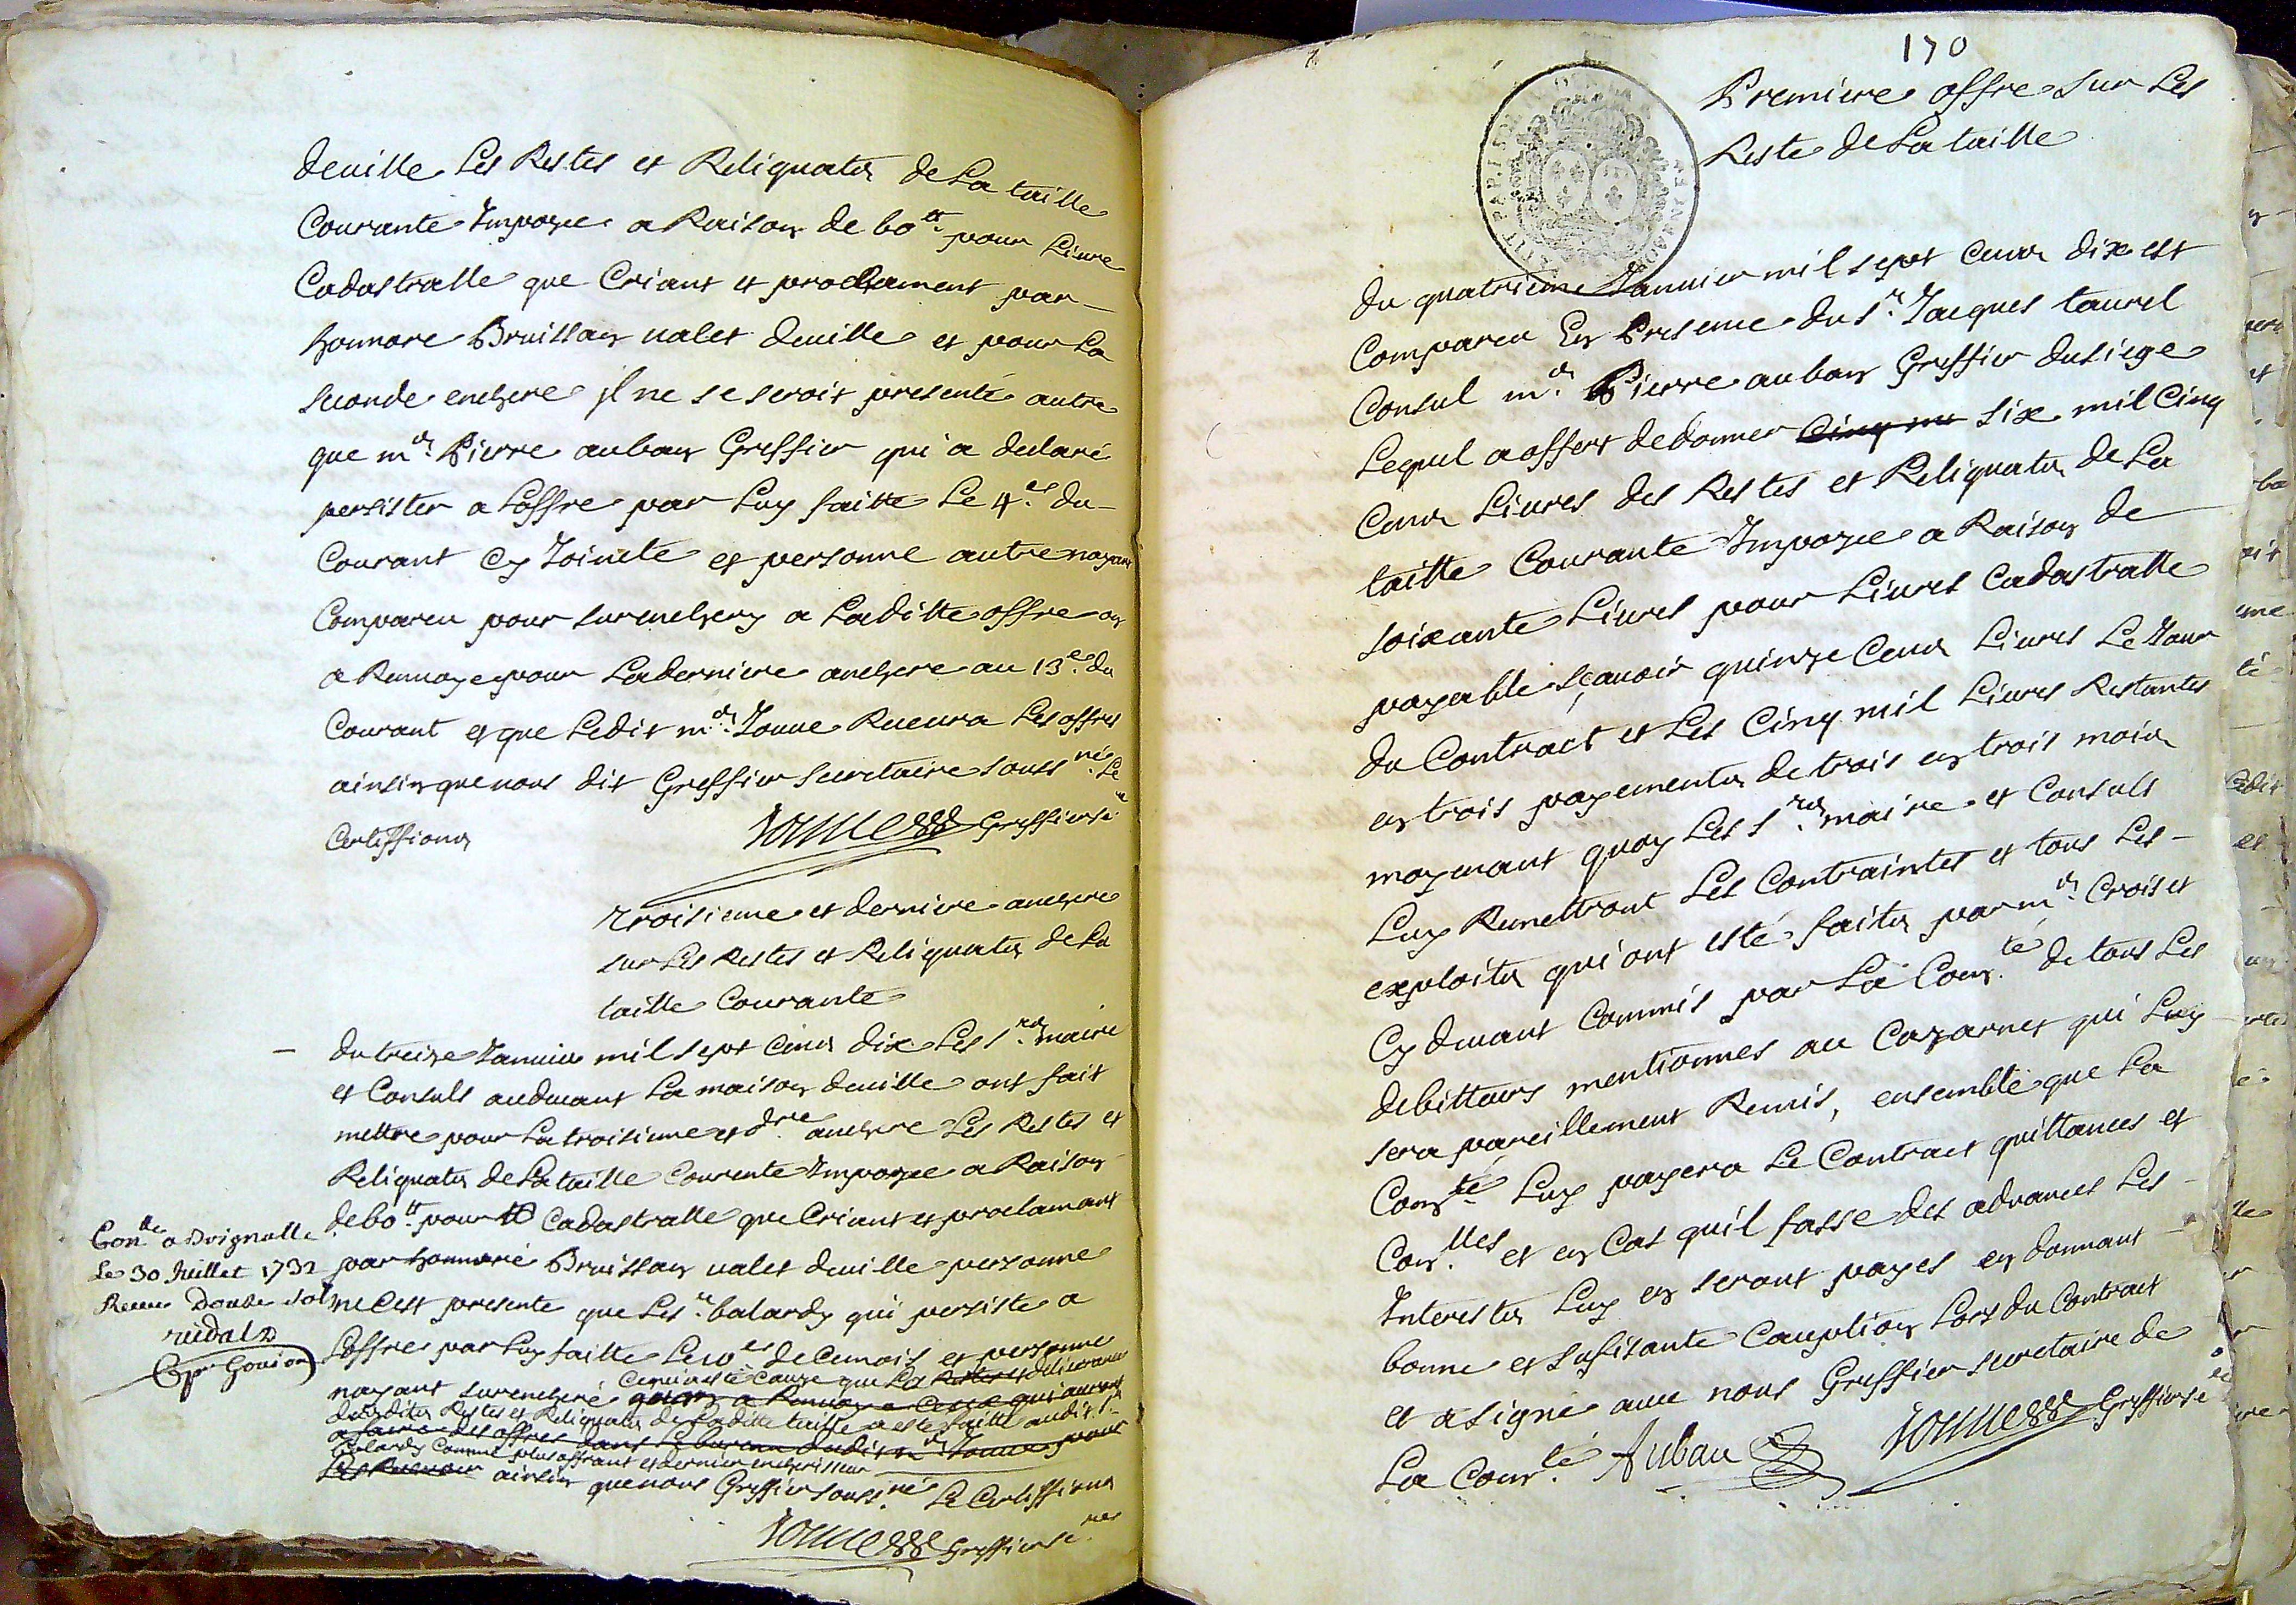 deville Les Restes et Reliquatz de La taille
Courante Impozee a Raison de 60 tt pour Livre
Cadastralle que Criant et proclament par
honnore Bruissan valet deville et pour La
seconde enchere il ne se seroit presenté autre
que me Pierre auban Greffier qui a declaré
persister a Loffre par Luy faitte Le 4e du
Courant Cy Joincte et personne autre nayant
Comparu pour surenchery a Laditte offre on
a Renvoye pour La derniere anchere au 13e du
Courant et que Ledit me Jouve Recevra Les offres
ainsin que nous dit Greffier secretaire soussné Le
Certiffions
Jouve Greffier se re
Troisieme et derniere anchere
sur Les Restes et Reliquatz de La
taille Courante
du treize Janvier mil sept Cens dix Les srs maire
et Consuls au devant La maison deville ont fait
mettre pour La troisieme et dre anchere Les Restes et
Reliquatz de La taille Courente Impozee a Raison
de 60 tt pour tt Cadastralle que Criant et proclamant
par honnoré Bruissan valet deville personne
ne Cest presente que Le sr balardy qui persiste a
Loffre par Luy faitte Le 10e de Cemois et personne
nayant surencheré Cequi a esté Cauze que La delivrance
desdits Restes et Reliquatz de Laditte taille a este faitte audit sr
balardy Comme plus offrant et dernier encherisseur
ainsin que nous Greffier soussné Le Certiffions
Jouve Greffier se re
Conlle a Brignolle
Le 30 Juillet 1732
Receu Douze sols
170
Premiere offre sur Les
Reste de La taille
du quatrieme Janvier mil sept Cens dix est
Comparu En Presence du sr Jacques taurel
Consul me Pierre auban Greffier du siege
Lequel a offert de donner Cinq mil six mil Cinq
Cens Livres des Restes et Reliquatz de La
taille Courante Impozee a Raison de
soixante Livres pour Livres Cadastralle
payable sçavoir quinze Cens Livres Le Jour
du Contract et Les Cinq mil Livres Restantes
en trois payements de trois en trois mois
moyenant quoy Les srs maire et Consuls
Luy Remettront Les Contraintes et tous Les
exploits qui ont esté faits par me Croiset
Cy devant Commis par La Comté de tous Les
debitteurs mentionnes au Cazarnet qui Luy
sera pareillement Remis, ensemble que La
Comté Luy payera Le Contract quittances et
Conlles et en Cas quil fasse des advances Les
Interests Luy en seront payes en donnant
bonne et sufisante Cauption Lors du Contract
et a signé avec nous Greffier secretaire de
La Comté Auban Jouve Greffier se re